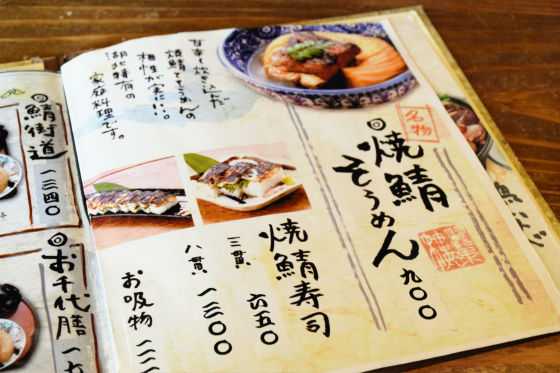 名物
焼鯖そうめん 九〇〇
甘辛く炊き込んだ
焼鯖とそうめんの
相性が実にいい。
湖北特有の
家庭料理です。
焼鯖寿司
三貫 六五〇
八貫 一三〇〇
お吸物
鯖街道 一三四〇
お千代膳